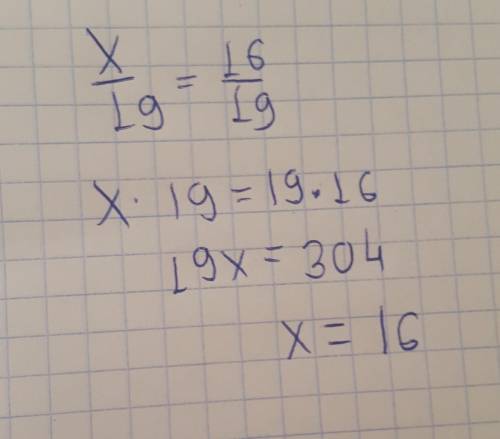 x/19 = 16/19
x · 19 = 19 · 16
19x = 304
x = 16